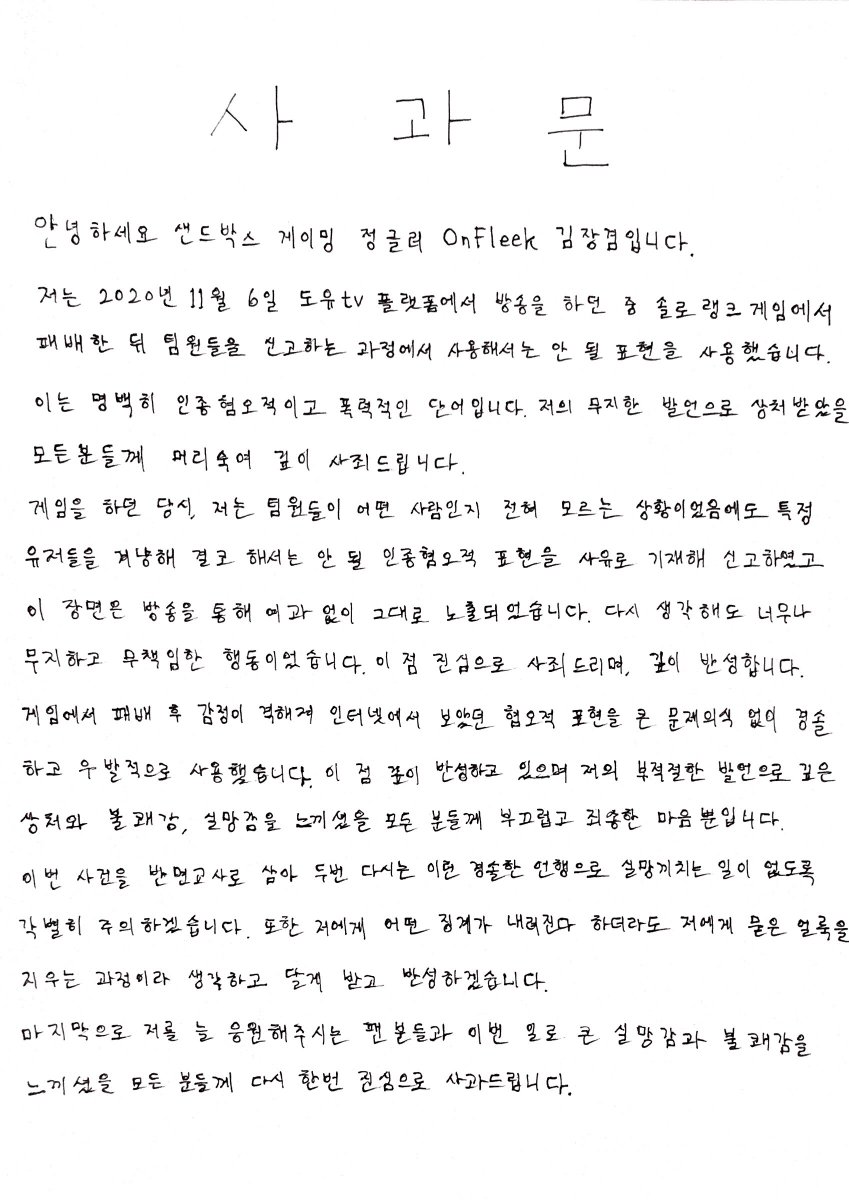 사 과 문
안녕하세요 샌드박스 게이밍 정글러 OnFleek 김장겸입니다.
저는 2020년 11월 6일 도유tv 플랫폼에서 방송을 하던 중 솔로랭크게임에서
패배한 뒤 팀원들을 신고하는 과정에서 사용해서는 안 될 표현을 사용했습니다.
이는 명백히 인종혐오적이고 폭력적인 단어입니다. 저의 무지한 발언으로 상처받았을
모든분들께 머리숙여 깊이 사죄드립니다.
게임을 하던 당시, 저는 팀원들이 어떤 사람인지 전혀 모르는 상황이었음에도 특정
유저들을 겨냥해 결코 해서는 안 될 인종혐오적 표현을 사유로 기재해 신고하였고
이 장면은 방송을 통해 여과없이 그대로 노출되었습니다. 다시 생각해도 너무나
무지하고 무책임한 행동이었습니다. 이 점 진심으로 사죄드리며, 깊이 반성합니다.
게임에서 패배 후 감정이 격해져 인터넷에서 보았던 혐오적 표현을 큰 문제의식 없이 경솔
하고 우발적으로 사용했습니다. 이 점 깊이 반성하고 있으며 저의 부적절한 발언으로 깊은
상처와 불쾌감, 실망감을 느끼셨을 모든 분들께 부끄럽고 죄송한 마음뿐입니다.
이번 사건을 반면교사로 삼아 두번 다시는 이런 경솔한 언행으로 실망끼치는 일이 없도록
각별히 주의하겠습니다. 또한 저에게 어떤 징계가 내려진다 하더라도 저에게 묻은 얼룩을
지우는 과정이라 생각하고 달게 받고 반성하겠습니다.
마지막으로 저를 늘 응원해주시는 팬분들과 이번 일로 큰 실망감과 불쾌감을
느끼셨을 모든 분들께 다시 한번 진심으로 사과드립니다.